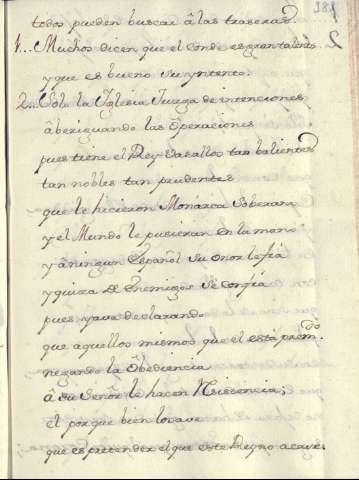 todos pueden buscar â las traseras.
1.. Muchos dicen que el conde es gran talento
y que es bueno su yntento.
2.. Solo la Yglesia Juzga de intenciones
âberiguando las Operaciones
pues tiene el Rey Vasallos tan balientes
tan nobles tan prudentes
que le hicieron Monarca Soberano
y el Mundo le pusieran en la mano
y â ningun Español su onor le fia
y quiza de Enemigos se confia
pues ya va declarando
que aquellos mismos que el està prem.do
negando la Obediencia
â su Señor le hacen Resistencia;
el porque bien lo save
que es pretender el que este Reyno acave.
181
2